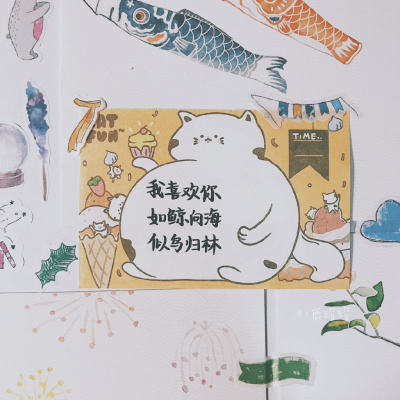 EAT
FUN~
TIME..
我喜欢你
如鲸向海
似鸟归林